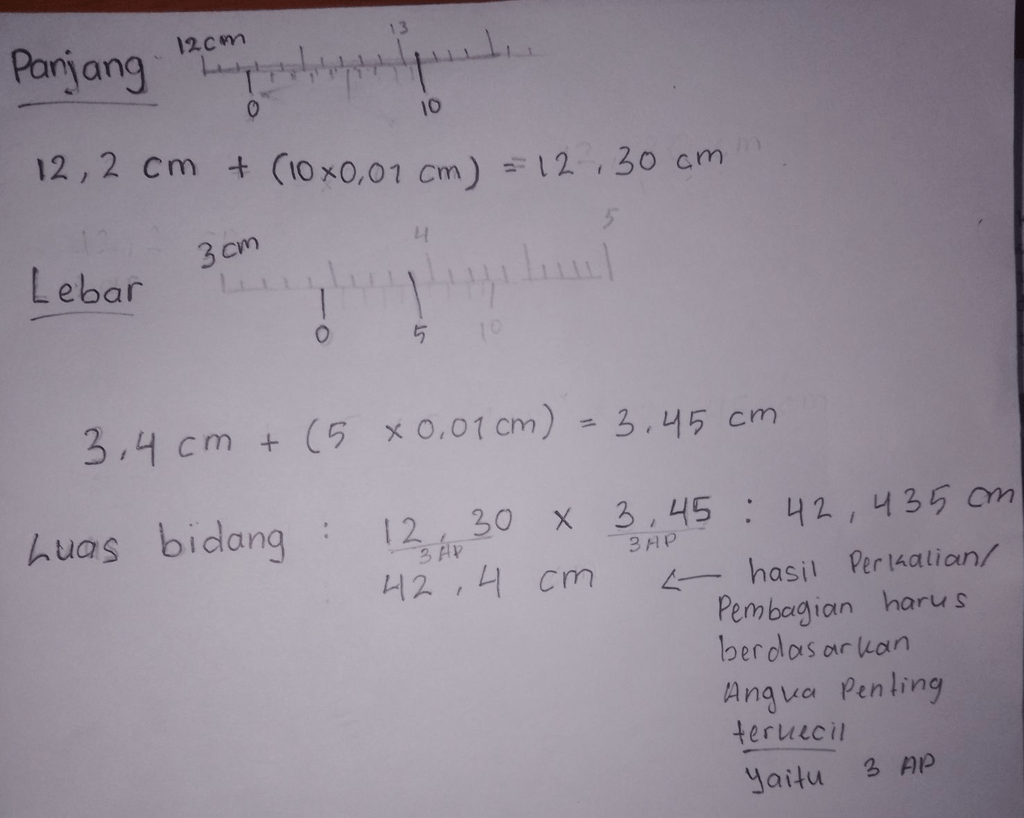 Panjang 12cm 13
0 10
12,2 cm + (10×0,01 cm) = 12,30 cm
Lebar 3cm 4 5
0 5 10
3,4 cm + (5 × 0,01 cm) = 3,45 cm
Luas bidang : 12,30 × 3,45 : 42,435 cm
3 AP 3 AP
42,4 cm ← hasil Perkalian/
Pembagian harus
berdasarkan
Angka Penting
terkecil
yaitu 3 AP